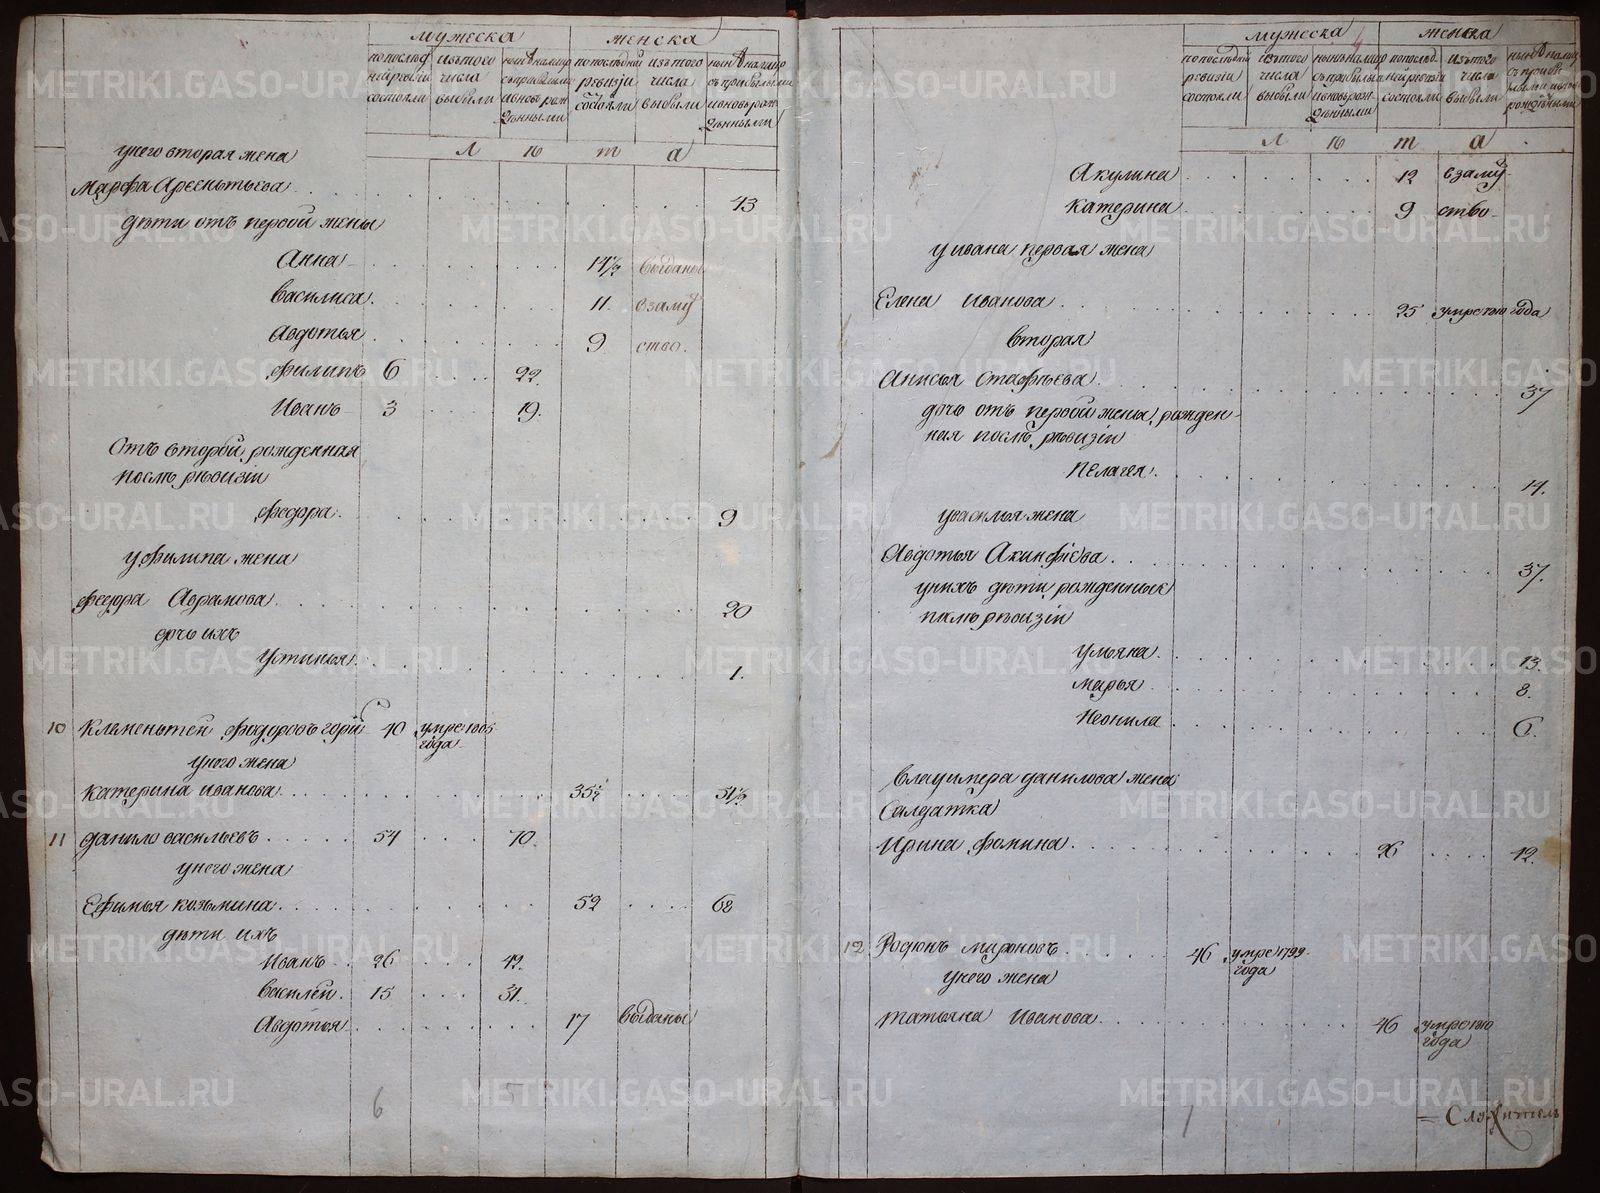 мужеска женска
по последней ревизіи состояли
изъ того числа выбыли
ныне на лицо с прибылыми и вновь рожденными
по последней ревизіи состояли
изъ того числа выбыли
ныне на лицо с прибылыми и вновь рожденными
л ѣ т а
у него вторая жена
Марфа Арсентьева 43
дѣти отъ первой жены
Анна 14½ выданы
Василиса 11. взаму
Авдотья 9 ство.
Филипъ 6 22.
Иванъ 3 19.
Отъ второй рожденная
послѣ рѣвизіи
Федора 9
у Филипа жена
Федора Аврамова 20
дочь ихъ
Устинья 1.
10 Клементей Федоровъ 40 умре 1805
года
у него жена
Катерина Иванова 35½ 51½
11 Данило Васильевъ 54 70.
у него жена
Ефимья Козьмина 52 68
дѣти ихъ
Иванъ 26 42.
Василей 15 31.
Авдотья 17 выданы
6 5
мужеска женска
по последней ревизіи состояли
изъ того числа выбыли
ныне на лицо с прибылыми и вновь рожденными
по последней ревизіи состояли
изъ того числа выбыли
ныне на лицо с прибылыми и вновь рожденными
л ѣ т а
Акулина 12 взаму
Катерина 9 ство
у Ивана первая жена
Елена Иванова 25 года
вторая
Анисья Стафеева 37
дочь отъ первой жены рожден-
ная послѣ рѣвизіи
Пелагея 14.
у Василья жена
Авдотья Акинфіева 37.
у нихъ дѣти рожденныя
послѣ рѣвизіи
Ульяна 13.
Марья 8.
Неонила 6.
Владимера Данилова жена
Салдатка
Ирина Фомина 26 42.
12 Родионъ Мироновъ 46 умре 1799
года
у него жена
Татьяна Иванова 46
года
7
METRIKI.GASO-URAL.RU